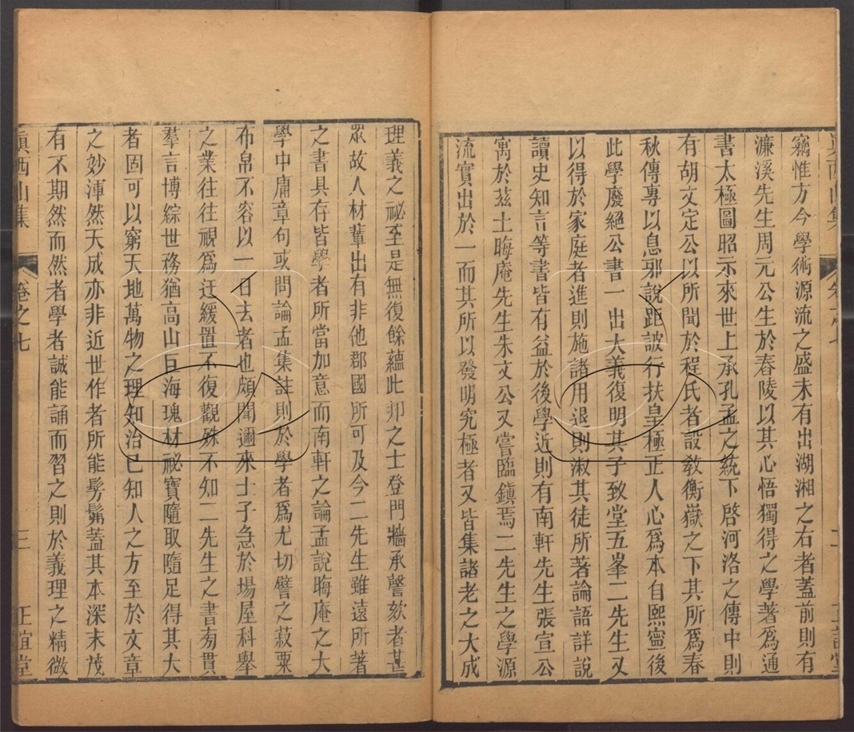 竊惟方今學術源流之盛未有出湖湘之右者蓋前則有
濂溪先生周元公生於舂陵以其心悟獨得之學著爲通
書太極圖昭示來世上承孔孟之統下啓河洛之傳中則
有胡文定公以所聞於程氏者設教衡嶽之下其所爲春
秋傳專以息邪說距詖行扶皇極正人心爲本自熙寧後
此學廢絕公書一出大義復明其子致堂五峯二先生又
以得於家庭者進則施諸用退則淑其徒所著論語詳說
讀史知言等書皆有益於後學近則有南軒先生張宣公
寓於茲土晦庵先生朱文公又嘗臨鎮焉二先生之學源
流實出於一而其所以發明究極者又皆集諸老之大成
理義之祕至是無復餘蘊此邦之士登門牆承謦欬者甚
眾故人材輩出有非他郡國所可及今二先生雖遠所著
之書具存皆學者所當加意而南軒之論孟說晦庵之大
學中庸章句或問論孟集註則於學者爲尤切譬之菽粟
布帛不容以一日去者也頗聞邇來士子急於場屋科舉
之業往往視爲迂緩置不復觀殊不知二先生之書旁貫
羣言博綜世務猶高山巨海瑰材祕寶隨取隨足得其大
者固可以窮天地萬物之理知治己知人之方至於文章
之妙渾然天成亦非近世作者所能髣髴蓋其本深末茂
有不期然而然者學者誠能誦而習之則於義理之精微
眞西山集
卷之七
三
正誼堂